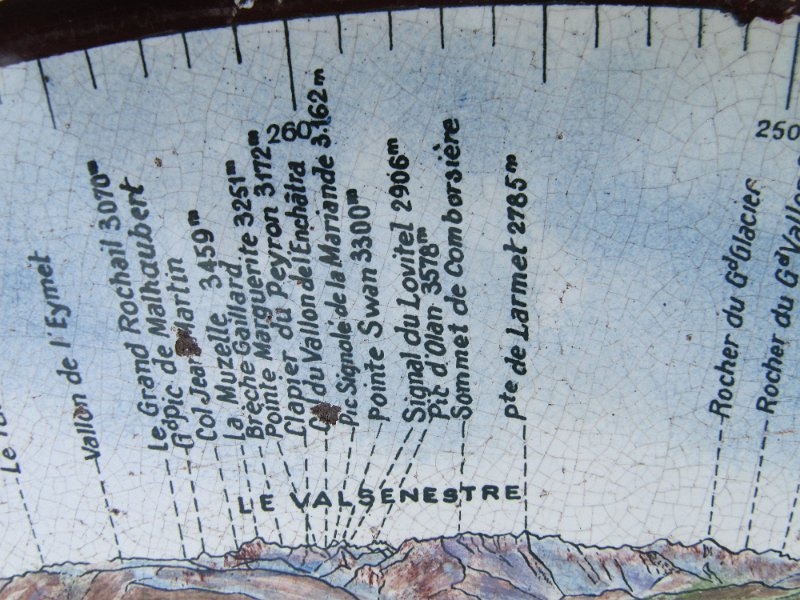 260
250
Le
Vallon de l'Eymet
Le Grand Rochail 3070m
Gd pic de Malhaubert
Col Jean Martin
La Muzelle 3459m
Brèche Gaillard
Pointe Marguerite 3251m
Clapier du Peyron 3172m
du Vallon de l'Enchâtra
Pic Signalé de la Mariande 3.162m
Pointe Swan 3300m
Signal du Lovitel 2906m
Pit d'Olan 3578m
Sommet de Comborsière
Pte de Larmet 2785m
Rocher du Gd Glacier
Rocher du Gd Vallon
LE VALSENESTRE